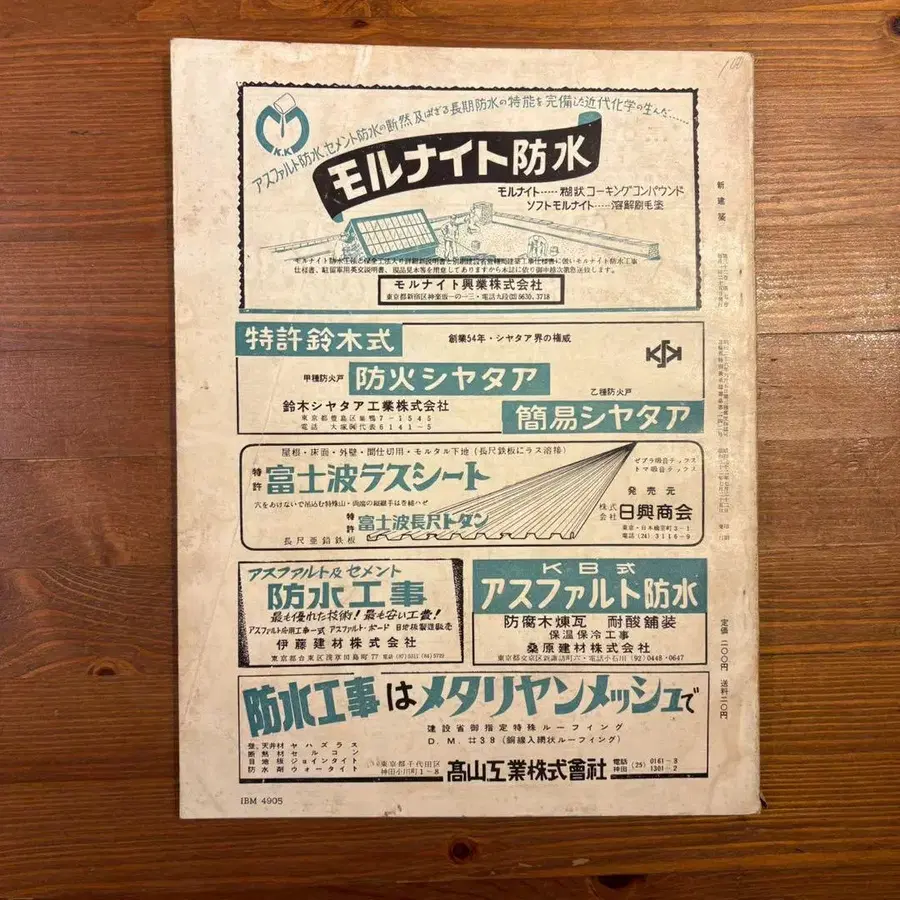 K.K
アスファルト防水、セメント防水の断然及ばざる長期防水の特能を完備した近代化学の生んだ……
モルナイト防水
モルナイト……糊状コーキングコンパウンド
ソフトモルナイト……溶解刷毛塗
仕様書、駐留軍用英文説明書、現品見本等を用意してありますから本誌に依り御申越次第急送致します。
モルナイト興業株式会社
東京都新宿区神楽坂一の一三・電話九段(33)5630, 3718
特許鈴木式
創業54年・シヤタア界の権威
甲種防火戸
防火シヤタア
乙種防火戸
鈴木シヤタア工業株式会社
簡易シヤタア
東京都豊島区巣鴨7-1545
電話 大塚(86)代表6141-5
屋根・床面・外壁・間仕切用・モルタル下地(長尺鉄板にラス溶接)
特許
富士波ラスシート
穴をあけないで吊込む特殊山・両端の縦継手は巻締ハゼ
特許
富士波長尺トタン
長尺亜鉛鉄板
ゼブラ吸音テックス
トマ吸音テックス
発売元
株式会社
日興商会
東京・日本橋室町3-1
電話(24)3116-9
アスファルト及セメント
防水工事
最も優れた技術!最も安い工費!
アスファルト応用工事一式 アスファルト・ボード 目地板製造販売
伊藤建材株式会社
KB式
アスファルト防水
防腐木煉瓦 耐酸舗装
保温保冷工事
桑原建材株式会社
東京都文京区新諏訪町六・電話小石川(92)0448・0647
防水工事はメタリヤンメッシュで
建設省御指定特殊ルーフィング
D.M.♯38(銅線入網状ルーフィング)
壁、天井材 ヤハズラス
断熱材 セルコン
目地板 ジョインタイト
防水剤 ウォータイト
東京都千代田区
神田小川町1-8
高山工業株式會社
電話神田(25)0161-3
1301-2
IBM 4905
新建築
定価 二〇〇円 送料二〇円